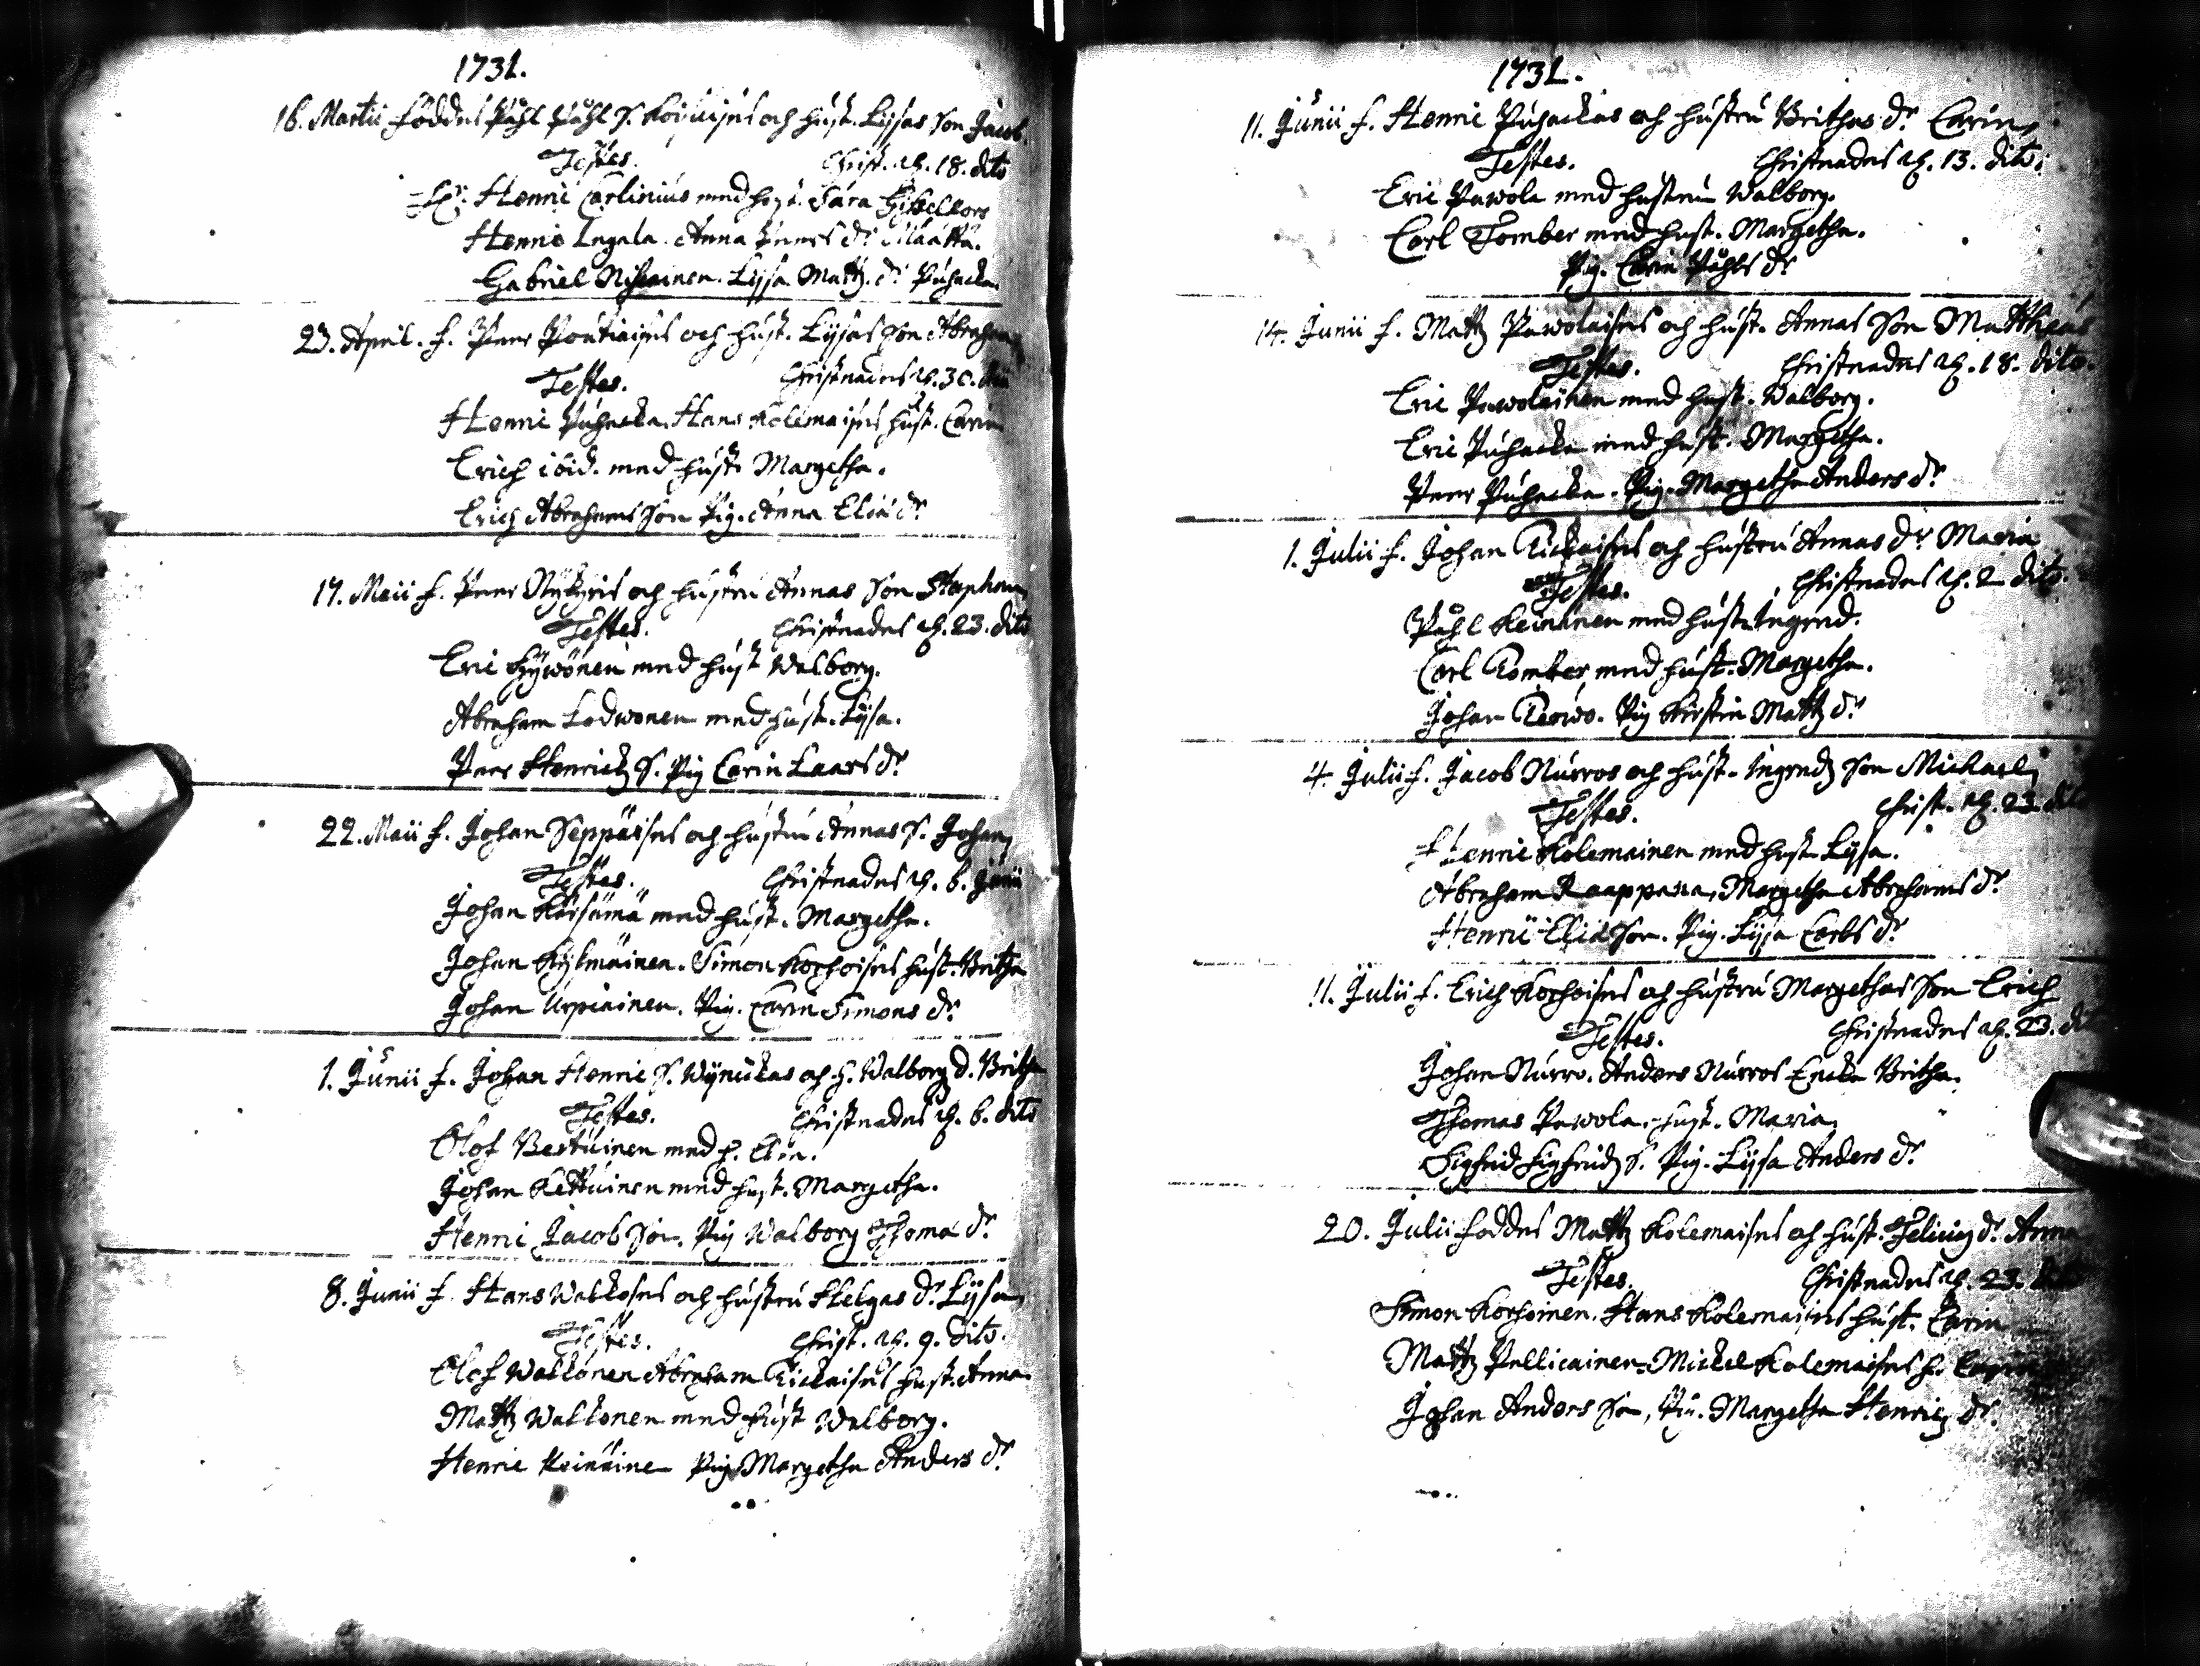 1731.
16. Martii föddes Påhl Påhl S. Koiuises och hust. Lysas son Jacob.
Testes. Christ. d. 18. dito
Hr. Henric Carlinius med Sara
Henric Ingala. Anna Peers dr Määttä.
Gabriel Niskainen. Lysa Matz. dr Puhacka.
23. April. f. Peer Pontiaises och hust. Lysas son Abraham
Testes. Christnades d. 30. dito
Henric Puhacka. Hans Kolemaises hust. Carin
Erich ibid. med hust. Margetha.
Erich Abrahams son Pig. Anna Eliæ dr
17. Maii f. Peer Nykyris och hustru Annas son Staphan
Testes. Christnades d. 23. dito
Eric Hywönen med hust Walborg.
Abraham Lodwonen med hust. Lysa.
Peer Henrich S. Pig Carin Laars dr
22. Maii f. Johan Seppäises och hustru Annas S. Johan
Testes. Christnades d. 6. Junii
Johan Kärsämä med hust. Margetha.
Johan Kylmäinen. Simon Korhoises hust. Britha
Johan Urpiainen. Pig. Carin Simons dr
1. Junii f. Johan Henric S. Wynickas och h. Walborg d. Britha
Testes. Christnades d. 6. dito
Olof Bertuinen med h. Elin.
Johan Kettuinen med hust. Margetha.
Henric Jacob Son. Pig Walborg Thomæ dr
8. Junii f. Hans Walkoses och hustru Helgas dr Lysa
Testes. Christ. d. 9. dito.
Olof Walkonen Abraham Kickaises hust. Anna.
Mattz Walkonen med hust Walborg.
Henric Keinäinen Pig Margetha Anders dr
1731.
11. Junii f. Henric Puhackas och hustru Brithas dr Carin
Testes. Christnades d. 13. dito.
Eric Pawola med hustru Walborg.
Carl Tomber med hust. Margetha.
Pig. Carin Påhls dr
14. Junii f. Mattz Pawolaises och hust. Annas Son Mattheus
Testes. Christnades d. 18. dito.
Eric Pawolainen med hust. Walborg.
Eric Puhacka med hust. Margetha.
Peer Puhacka. Pig. Margetha Anders dr
1. Julii f. Johan Kickaises och hustru Annas dr Maria
Testes. Christnades d. 2 dito.
Påhl Keinänen med hust. Ingred.
Carl Tomber med hust. Margetha.
Johan Pig Kirstin Mattz dr
4. Julii f. Jacob Nurros och hust. Ingreds son Michael
Testes. Christ. d. 23. dito
Henric Kolemainen med hust. Lysa.
Abraham Raappana, Margetha Abrahams dr
Henric Eliæ son. Pig. Lysa Carls dr
11. Julii f. Erich Korhoises och hustru Margethas Son Erich
Testes. Christnades d. 23. dito
Johan Nurro. Anders Nurros Encka Britha.
Thomas Pawola, hust. Maria
Sigfrid Sigfrids S. Pig. Lysa Anders dr
20. Julii föddes Mattz Kolemaises och hust. Feliciæ dr Anna
Testes. Christnades d. 23. dito
Simon Korhoinen. Hans Kolemaises hust. Carin
Mattz Pellicainen. Mickel Kolemaises h. Carin
Johan Anders Son, Pig. Margetha Henrics dr